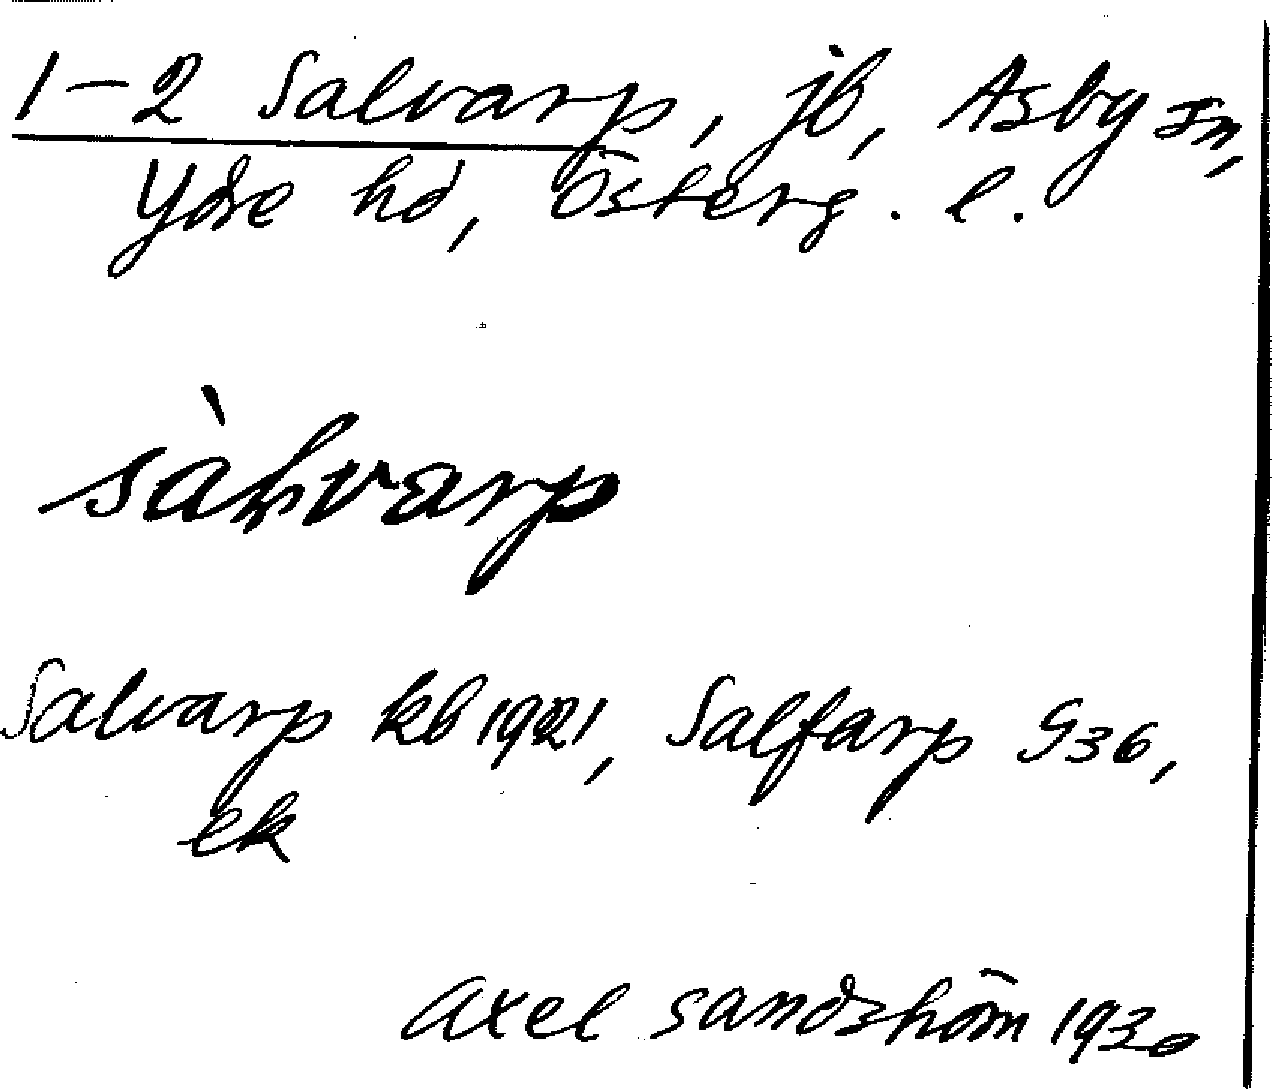 1-2 Salvarp, jb, Asby sn,
Ydre hd, Österg. l.
sàlvarp
Salvarp kb 1921, Salfarp G36,
ek
Axel Sandström 1930